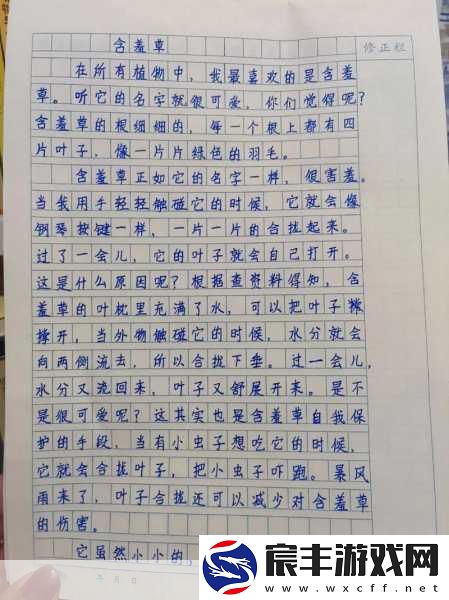 含羞草
修正栏
在所有植物中，我最喜欢的是含羞
草。听它的名字就很可爱，你们觉得呢？
含羞草的根细细的，每一个根上都有四
片叶子，像一片片绿色的羽毛。
含羞草正如它的名字一样，很害羞。
当我用手轻轻触碰它的时候，它就会像
钢琴按键一样，一片一片的合拢起来。
过了一会儿，它的叶子就会自己打开。
这是什么原因呢？根据查资料得知，含
羞草的叶枕里充满了水，可以把叶子撑
撑开，当外物触碰它的时候，水分就会
向两侧流去，所以合拢下垂。过一会儿，
水分又流回来，叶子又舒展开来。是不
是很可爱呢？这其实也是含羞草自我保
护的手段，当有小虫子想吃它的时候，
它就会合拢叶子，把小虫子吓跑。暴风
雨来了，叶子合拢还可以减少对含羞草
的伤害。
它虽然小小的，
年 月 日
宸丰游戏网
www.wxcff.net